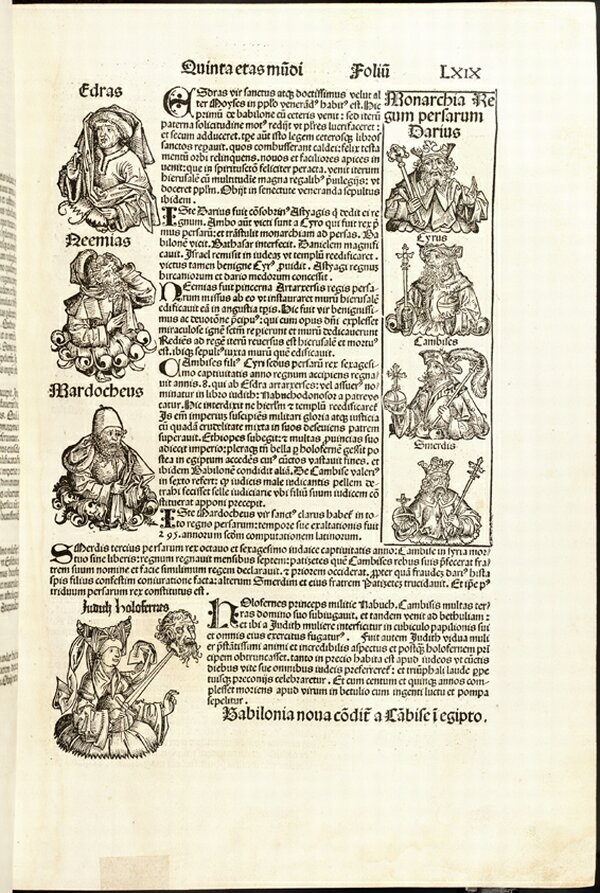 Quinta etas mũdi Foliũ LXIX
Edras
ESdras vir sanctus atqȝ doctissimus velut al
ter Moyses in pplo venerãdꝰ habitꝰ est. Hic
primũ de babilone cũ ceteris venit: sed iterũ
paterna solicitudine motꝰ redijt vt pñres lucrifaceret:
et secum adduceret. tpe aũt isto legem ceterosqȝ libros
sanctos repauit. quos combusserant caldei: felix testa
mentũ orbi relinquens. nouos et faciliores apices in
venit: que in spiritusctõ feliciter peracta. venit iterum
hierusalẽ cũ multitudie magna regalibꝰ pᷣuilegijs: vt
doceret ppłm. Obijt in senectute veneranda sepultus
ibidem.
ISte Darius fuit cõsobrinꝰ Astyagis q̃ dedit ei re
gnum. Ambo aũt victi sunt a Cyro qui fuit rex pᷣ
mus persarũ: et trãstulit monarchiam ad persas. Ba
bilonẽ vicit. Balthasar interfecit. Danielem magnifi
cauit. Israel remisit in iudeaȝ vt templũ reedificaret.
victus tamen benigne Cyrꝰ ꝓuidit. Astyagi regnus
hircaniorum et dario medorum concessit.
Neemias
NEemias fuit pincerna Artarxersis regis persa-
rum missus ab eo vt instauraret murũ hierusalẽ
edificauit eã in angustia tpis. Hic fuit vir benignissi-
mus ac deuotõne pᷣcipuꝰ: qui cum opus dñi explesset
miraculose ignẽ sctm̃ repierunt et murũ dedicauerunt
Rediẽs ad regẽ iterũ reuersus est hierusalẽ et mortuꝰ
est. ibiqȝ sepulꝰ iuxta murũ quẽ edificauit.
CAmbises filiꝰ Cyri scdus persarũ rex sexagesi
mo captiuitatis anno regnum accipiens regna
uit annis. 8. qui ab Esdra artarxerses: vel assuerꝰ no-
minatur in libro iudith: Nabuchodonosor a patre vo
catur. Hic interdixit ne hierłm ⁊ templũ reedificaret
Is em̃ imperiũ suscipiẽs militari gloria atqȝ iusticia
cũ quadã crudelitate mixta in suos deseuiens patrem
superauit. Ethiopes subegit: ⁊ multas ꝓuincias suo
adiecit imperio: pleraqȝ bella ꝑ holofernẽ gessit po
stea in egiptum accedẽs eiꝰ cũctos vastauit fines. et
ibidem Babilonẽ condidit aliã. De Cambise valeriꝰ
in sexto refert: qȝ iudicis male iudicantis pellem de-
trahi fecisset selle iudiciarie vbi filiũ suum iudicem cõ
stituerat apponi precepit.
Mardocheus
ISte Mardocheus vir sanctꝰ clarus habetꝰ in to-
to regno persarum: tempore sue exaltationis fuit
295. annorum scdm computationem latinorum.
Monarchia Re
gum persarum
Darius
Cyrus
Cambises
Smerdis
SMerdis tercius persarum rex octauo et sexagesimo iudaice captiuitatis anno: Cambise in syria mor
tuo sine liberis: regnum regnauit mensibus septem: patizetes quẽ Cambises rebus suis pᷣfecerat fra-
trem suum nomine et facie simillimum regem declarauit. ⁊ priorem occiderat. ꝓpter quã fraudeȝ dariꝰ hista
spis filius confestim coniuratione facta: alterum Smerdim et eius fratrem Patizetez trucidauit. Et ip̃e pᷣ
triduum persarum rex constitutus est.
Judith holofernes
HOlofernes princeps militie Nabuch. Cambisis multas ter-
ras domino suo subiugauit. et tandem venit ad bethuliam:
et ibi a Judith muliere interficitur in cubiculo papilionis sui
et omnis eius exercitus fugaturꝰ. Fuit autem Judith vidua muli
er pᷣstãtissimi animi et incredibilis aspectus et postqȝ holofernem pri
cipem obtruncasset. tanto in precio habita est apud iudeos vt cũctis
diebus vite sue omnibus iudeis preferreref: et triũphali laude ppe
tuisqȝ preconijs celebraretur. Et cum centum et quinqȝ annos com-
plesset moriens apud virum in betulio cum ingenti luctu et pompa
sepelitur.
Babilonia noua cõditꝰ a Cãbise ĩ egipto.